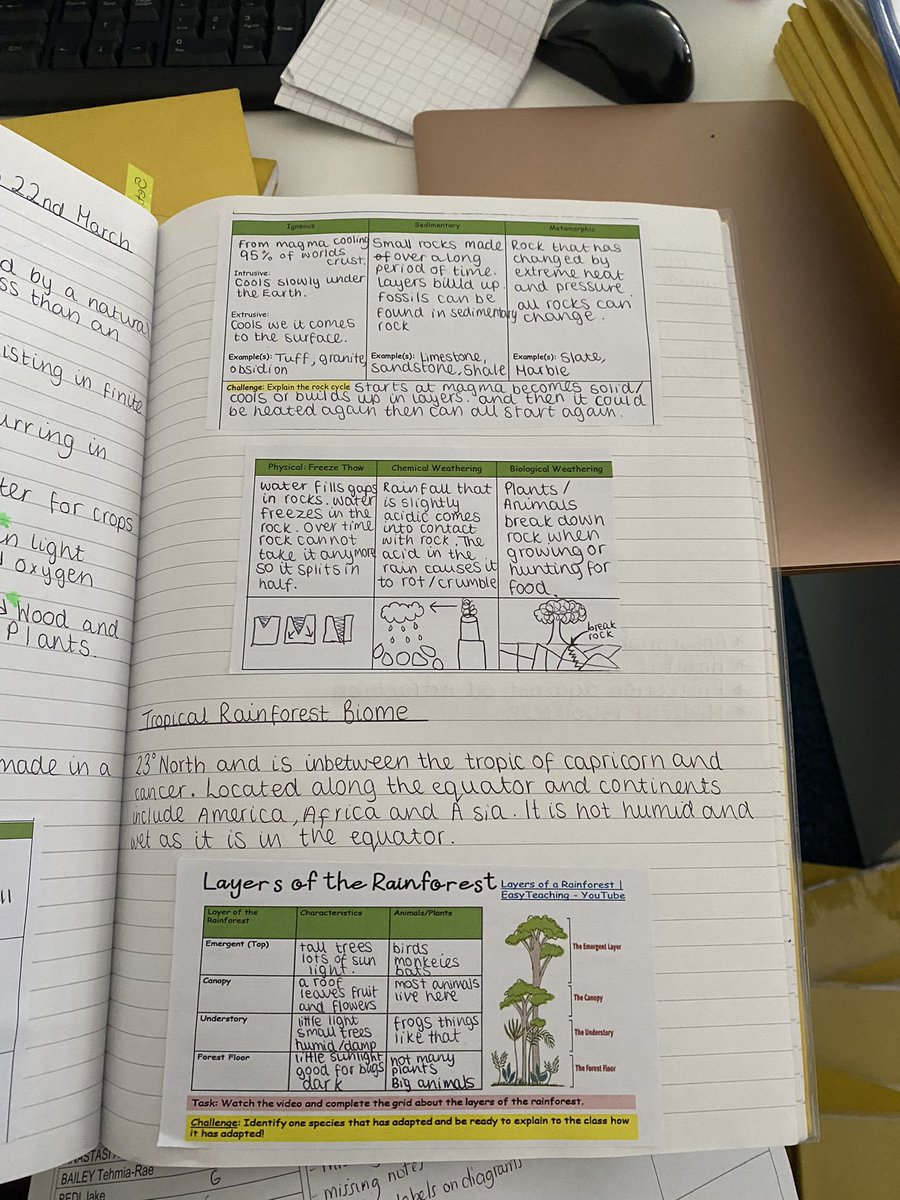 22nd March
d by a natural
ss than an
isting in finite
urring in
ter for crops
n light
oxygen
Wood and
Plants.
made in a
Igneous
From magma cooling
95% of worlds
crust.
Intrusive:
Cools slowly under
the Earth.
Extrusive:
Cools we it comes
to the surface.
Example(s): Tuff, granite,
obsidion
Sedimentary
Small rocks made
of over a long
period of time.
Layers build up.
Fossils can be
found in sedimentary
rock
Example(s): Limestone,
Sandstone, Shale
Metamorphic
Rock that has
changed by
extreme heat
and pressure
all rocks can
change.
Example(s): Slate,
Marble
Challenge: Explain the rock cycle Starts at magma becomes solid/
cools or builds up in layers. and then it could
be heated again then can all start again.
Physical: Freeze Thaw
water fills gaps
in rocks. Water
freezes in the
rock. Over time
rock cannot
take it anymore
so it splits in
half.
Chemical Weathering
Rainfall that
is slightly
acidic comes
into contact
with rock. The
acid in the
rain causes it
to rot/crumble
Biological Weathering
Plants/
Animals
break down
rock when
growing or
hunting for
food.
break
rock
Tropical Rainforest Biome
23° North and is inbetween the tropic of capricorn and
cancer. Located along the equator and continents
include America, Africa and Asia. It is not humid and
wet as it is in the equator.
Layers of the Rainforest
Layers of a Rainforest |
EasyTeaching - YouTube
Layer of the
Rainforest
Characteristics
Animals/Plants
Emergent (Top)
tall trees
lots of sun
light.
birds
monkeies
bats
Canopy
a roof
leaves fruit
and flowers
most animals
live here
Understory
little light
small trees
humid/damp
frogs things
like that
Forest Floor
little sunlight
good for bugs
dark
not many
plants
Big animals
The Emergent Layer
The Canopy
The Understory
The Forest Floor
Task: Watch the video and complete the grid about the layers of the rainforest.
Challenge: Identify one species that has adapted and be ready to explain to the class how
it has adapted!
BAILEY Tehmia-Rae
G
Jake
- missing notes
labels on diagrams